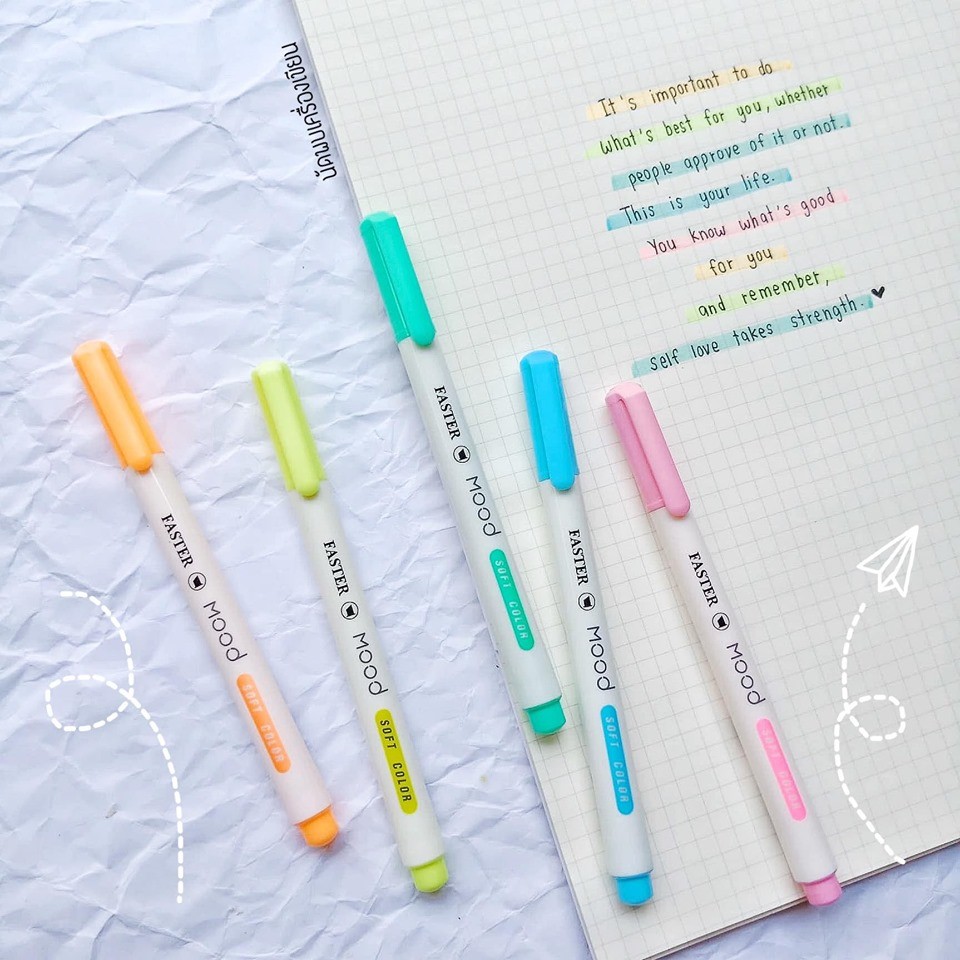 นัดพบเครื่องเขียน
It's important to do
what's best for you, whether
people approve of it or not.
This is your life.
You know what's good
for you
and remember,
self love takes strength. ♥
FASTER mood SOFT COLOR
FASTER mood SOFT COLOR
FASTER mood SOFT COLOR
FASTER mood SOFT COLOR
FASTER mood SOFT COLOR